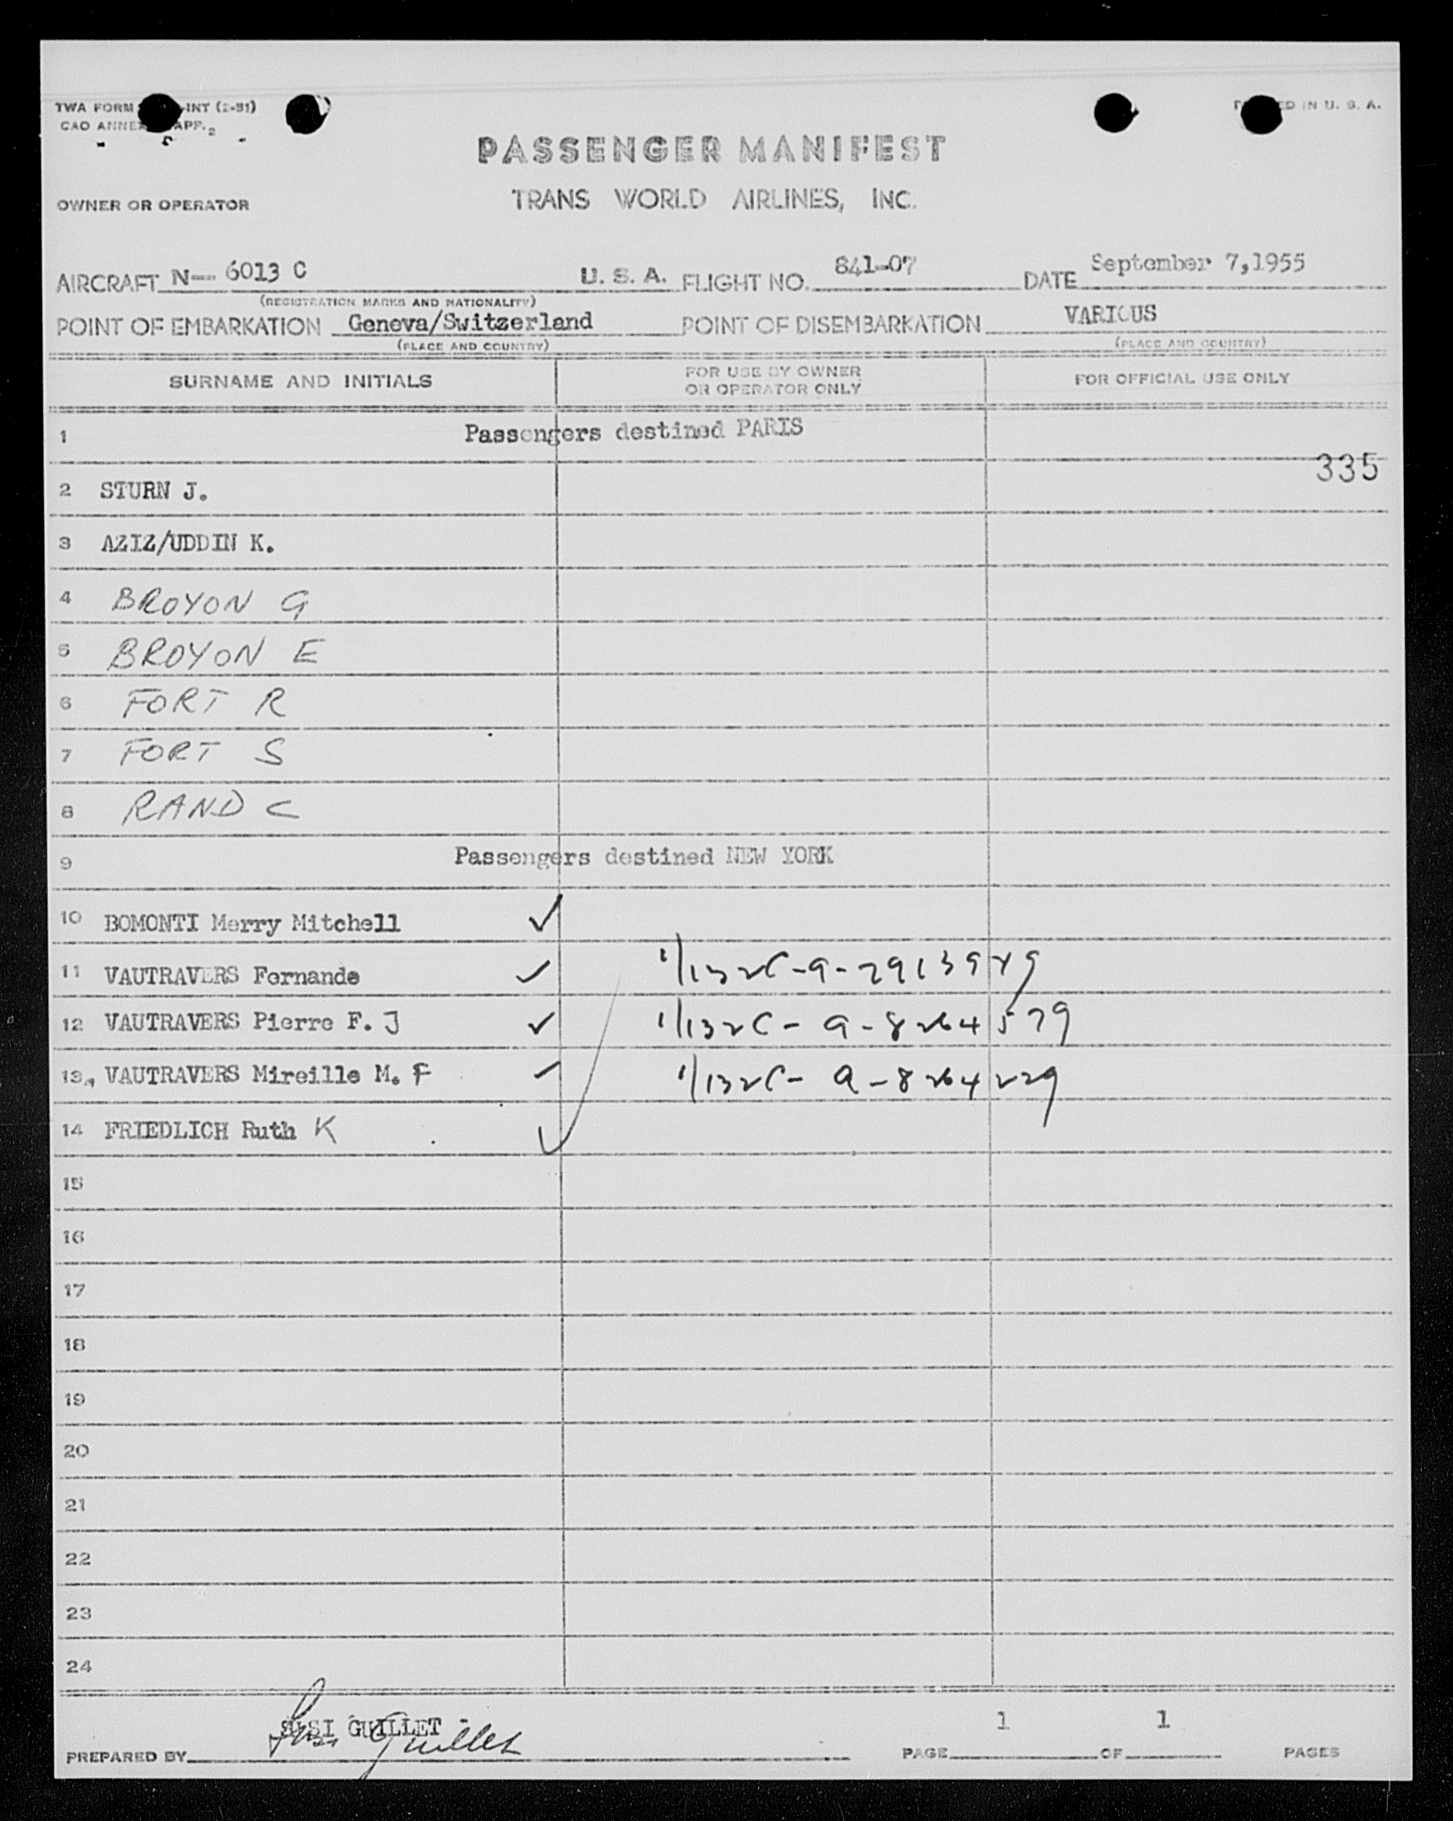 TWA FORM -INT (2-51)
PRINTED IN U. S. A.
CAO ANNEX APP. 2
PASSENGER MANIFEST
OWNER OR OPERATOR TRANS WORLD AIRLINES, INC.
AIRCRAFT N-- 6013 C U. S. A. FLIGHT NO. 841-07 DATE September 7,1955
(REGISTRATION MARKS AND NATIONALITY)
POINT OF EMBARKATION Geneva/Switzerland POINT OF DISEMBARKATION VARIOUS
(PLACE AND COUNTRY) (PLACE AND COUNTRY)
SURNAME AND INITIALS FOR USE BY OWNER OR OPERATOR ONLY FOR OFFICIAL USE ONLY
1 Passengers destined PARIS
335
2 STURN J.
3 AZIZ/UDDIN K.
4 BROYON G
5 BROYON E
6 FORT R
7 FORT S
8 RAND C
9 Passengers destined NEW YORK
10 BOMONTI Merry Mitchell ✓
11 VAUTRAVERS Fernande ✓
12 VAUTRAVERS Pierre F. J ✓ 1/132C- a-8264579
13 VAUTRAVERS Mireille M. F ✓ 1/132C- a-8264229
14 FRIEDLICH Ruth K ✓
15
16
17
18
19
20
21
22
23
24
SUSI GUILLET
Susi Guillet
PREPARED BY PAGE 1 OF 1 PAGES